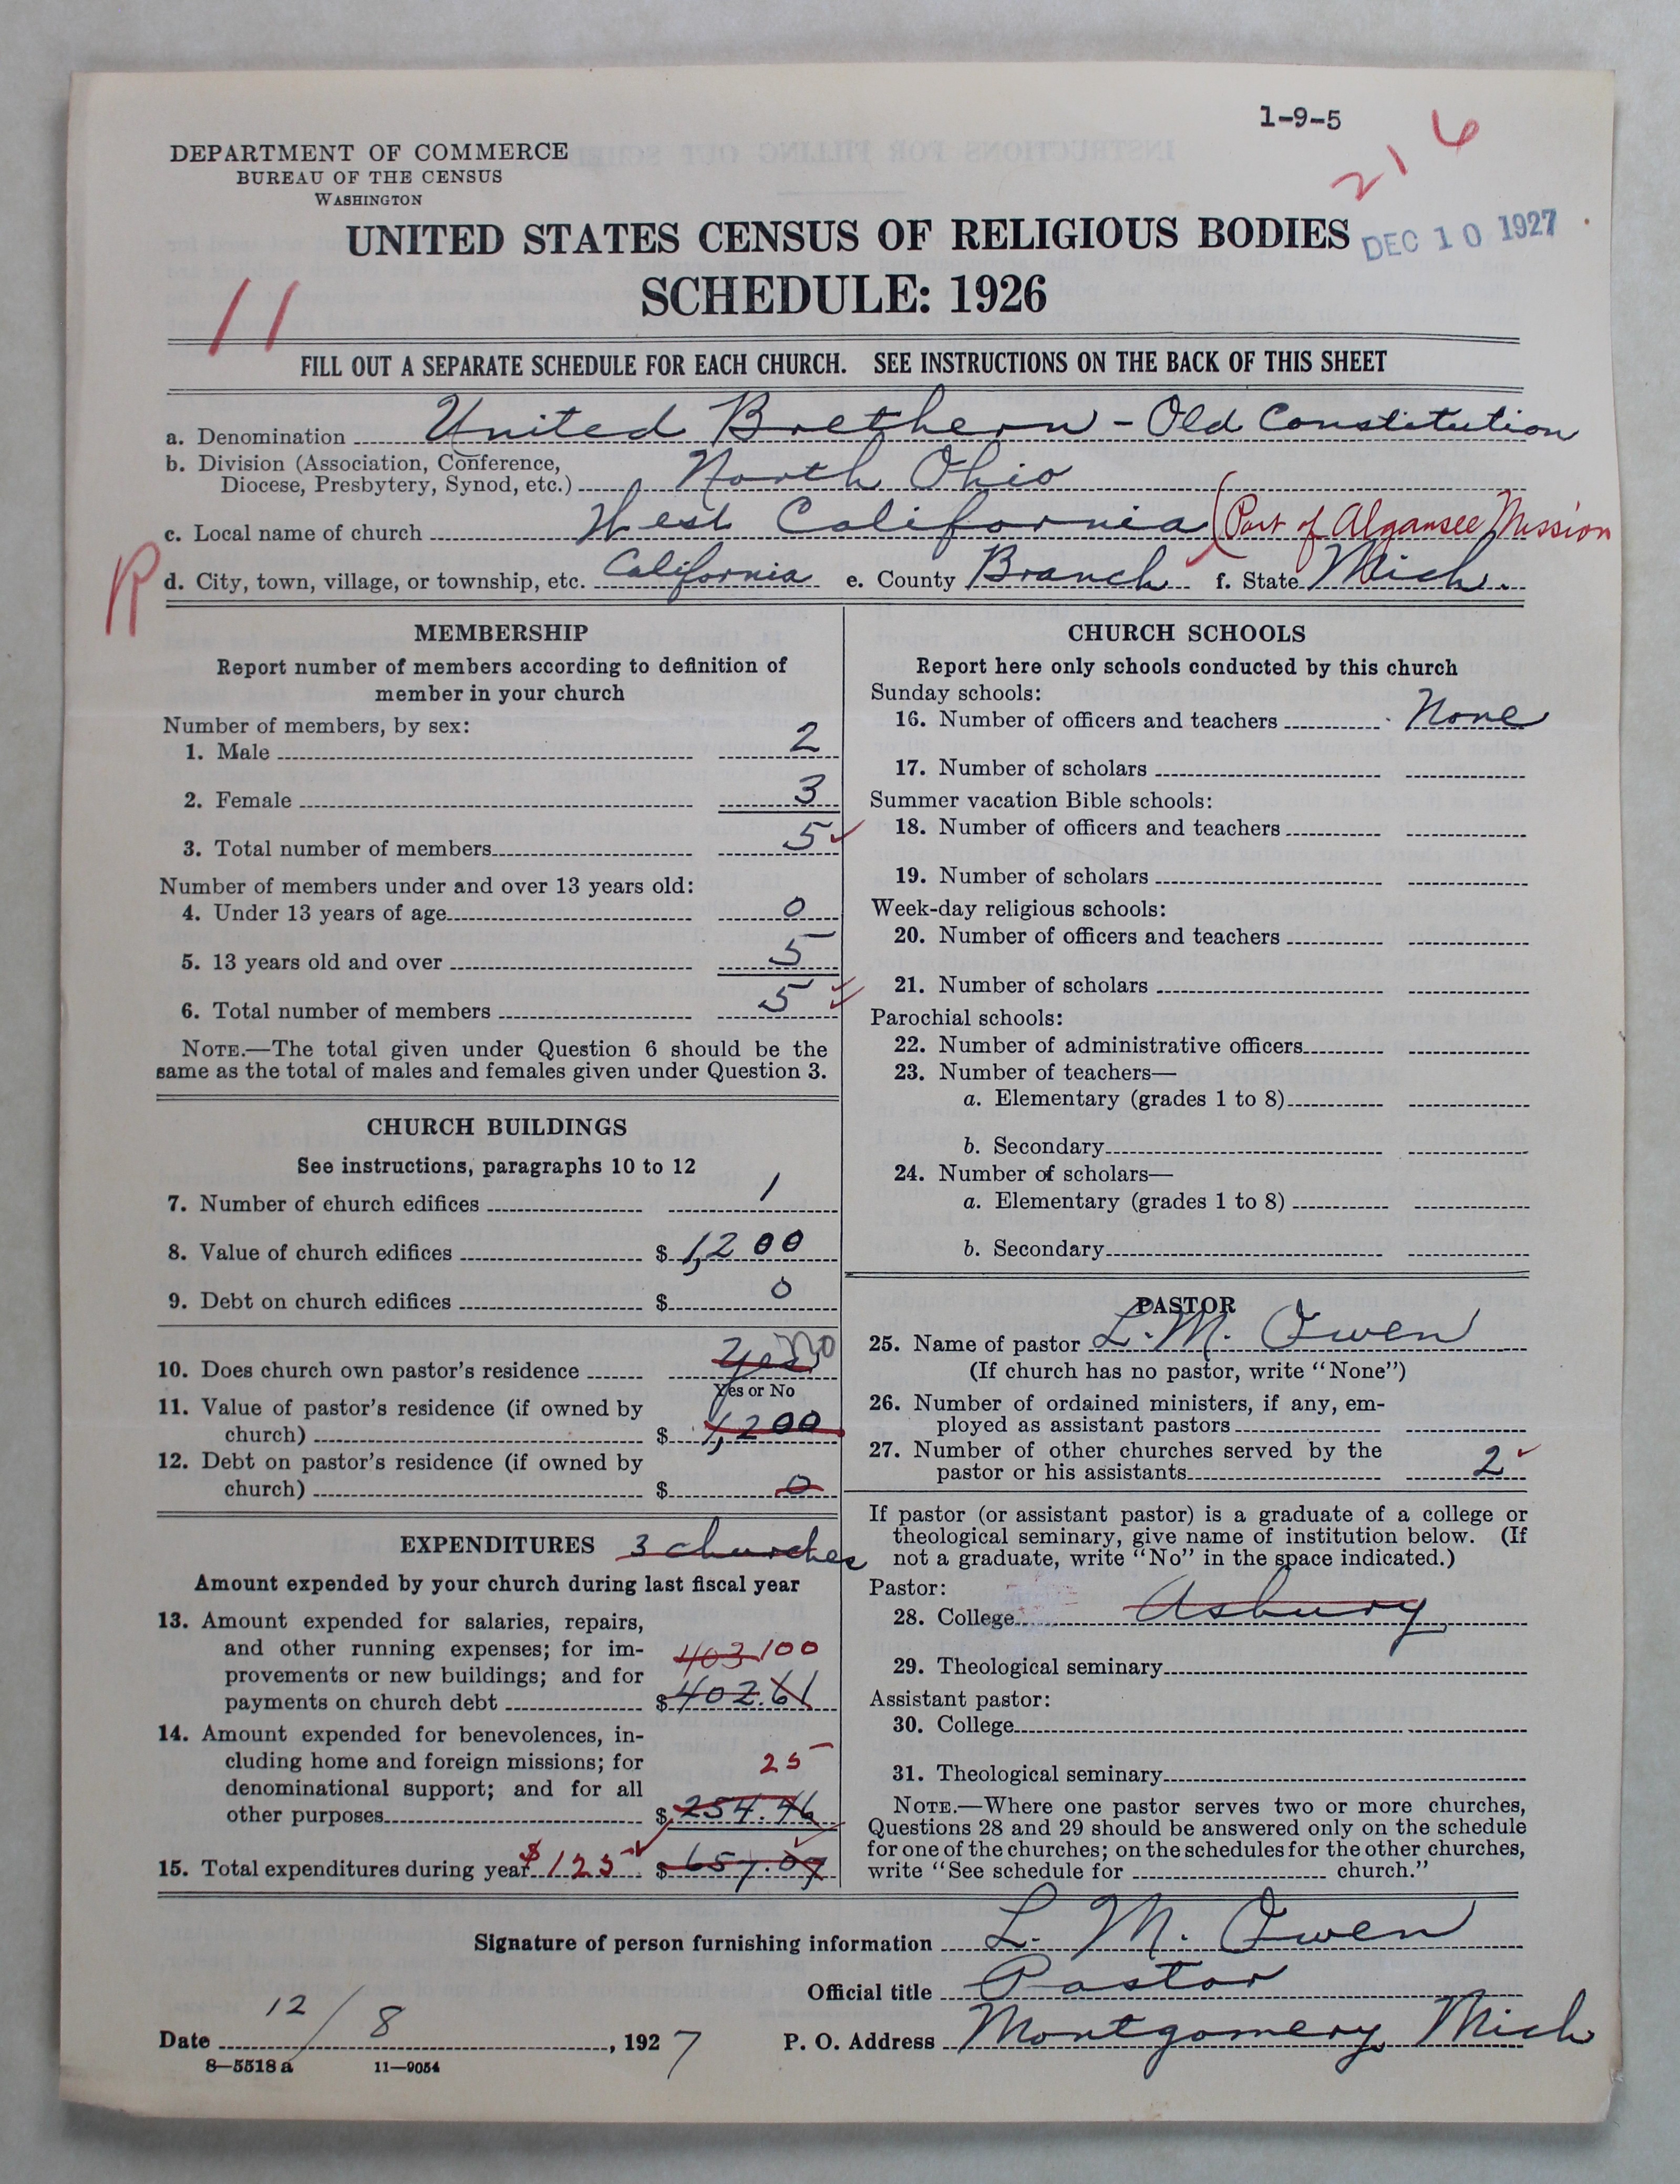 1-9-5
216
DEPARTMENT OF COMMERCE
BUREAU OF THE CENSUS
WASHINGTON
UNITED STATES CENSUS OF RELIGIOUS BODIES
DEC 10 1927
SCHEDULE: 1926
11
FILL OUT A SEPARATE SCHEDULE FOR EACH CHURCH. SEE INSTRUCTIONS ON THE BACK OF THIS SHEET
a. Denomination United Brethern - Old Constitution
b. Division (Association, Conference,
Diocese, Presbytery, Synod, etc.) North Ohio
c. Local name of church West California (Part of Algansee Mission
R
d. City, town, village, or township, etc. California e. County Branch f. State Mich.
MEMBERSHIP
Report number of members according to definition of
member in your church
Number of members, by sex:
1. Male 2
2. Female 3
3. Total number of members 5
Number of members under and over 13 years old:
4. Under 13 years of age 0
5. 13 years old and over 5
6. Total number of members 5
NOTE.—The total given under Question 6 should be the
same as the total of males and females given under Question 3.
CHURCH BUILDINGS
See instructions, paragraphs 10 to 12
7. Number of church edifices 1
8. Value of church edifices $ 1,200
9. Debt on church edifices $ 0
10. Does church own pastor's residence Yes No
Yes or No
11. Value of pastor's residence (if owned by
church) $ 1,200
12. Debt on pastor's residence (if owned by
church) $ 0
EXPENDITURES 3 churches
Amount expended by your church during last fiscal year
13. Amount expended for salaries, repairs,
and other running expenses; for im-
403 100
provements or new buildings; and for
payments on church debt $ 402.61
14. Amount expended for benevolences, in-
cluding home and foreign missions; for 25
denominational support; and for all
other purposes $ 254.46
15. Total expenditures during year $125 $ 657.07
CHURCH SCHOOLS
Report here only schools conducted by this church
Sunday schools:
16. Number of officers and teachers None
17. Number of scholars
Summer vacation Bible schools:
18. Number of officers and teachers
19. Number of scholars
Week-day religious schools:
20. Number of officers and teachers
21. Number of scholars
Parochial schools:
22. Number of administrative officers
23. Number of teachers—
a. Elementary (grades 1 to 8)
b. Secondary
24. Number of scholars—
a. Elementary (grades 1 to 8)
b. Secondary
PASTOR
25. Name of pastor L. M. Owen
(If church has no pastor, write "None")
26. Number of ordained ministers, if any, em-
ployed as assistant pastors
27. Number of other churches served by the
pastor or his assistants 2
If pastor (or assistant pastor) is a graduate of a college or
theological seminary, give name of institution below. (If
not a graduate, write "No" in the space indicated.)
Pastor:
28. College Asbury
29. Theological seminary
Assistant pastor:
30. College
31. Theological seminary
NOTE.—Where one pastor serves two or more churches,
Questions 28 and 29 should be answered only on the schedule
for one of the churches; on the schedules for the other churches,
write "See schedule for church."
Signature of person furnishing information L. M. Owen
Official title Pastor
Date 12/8, 1927 P. O. Address Montgomery, Mich
8-5518 a 11-9054